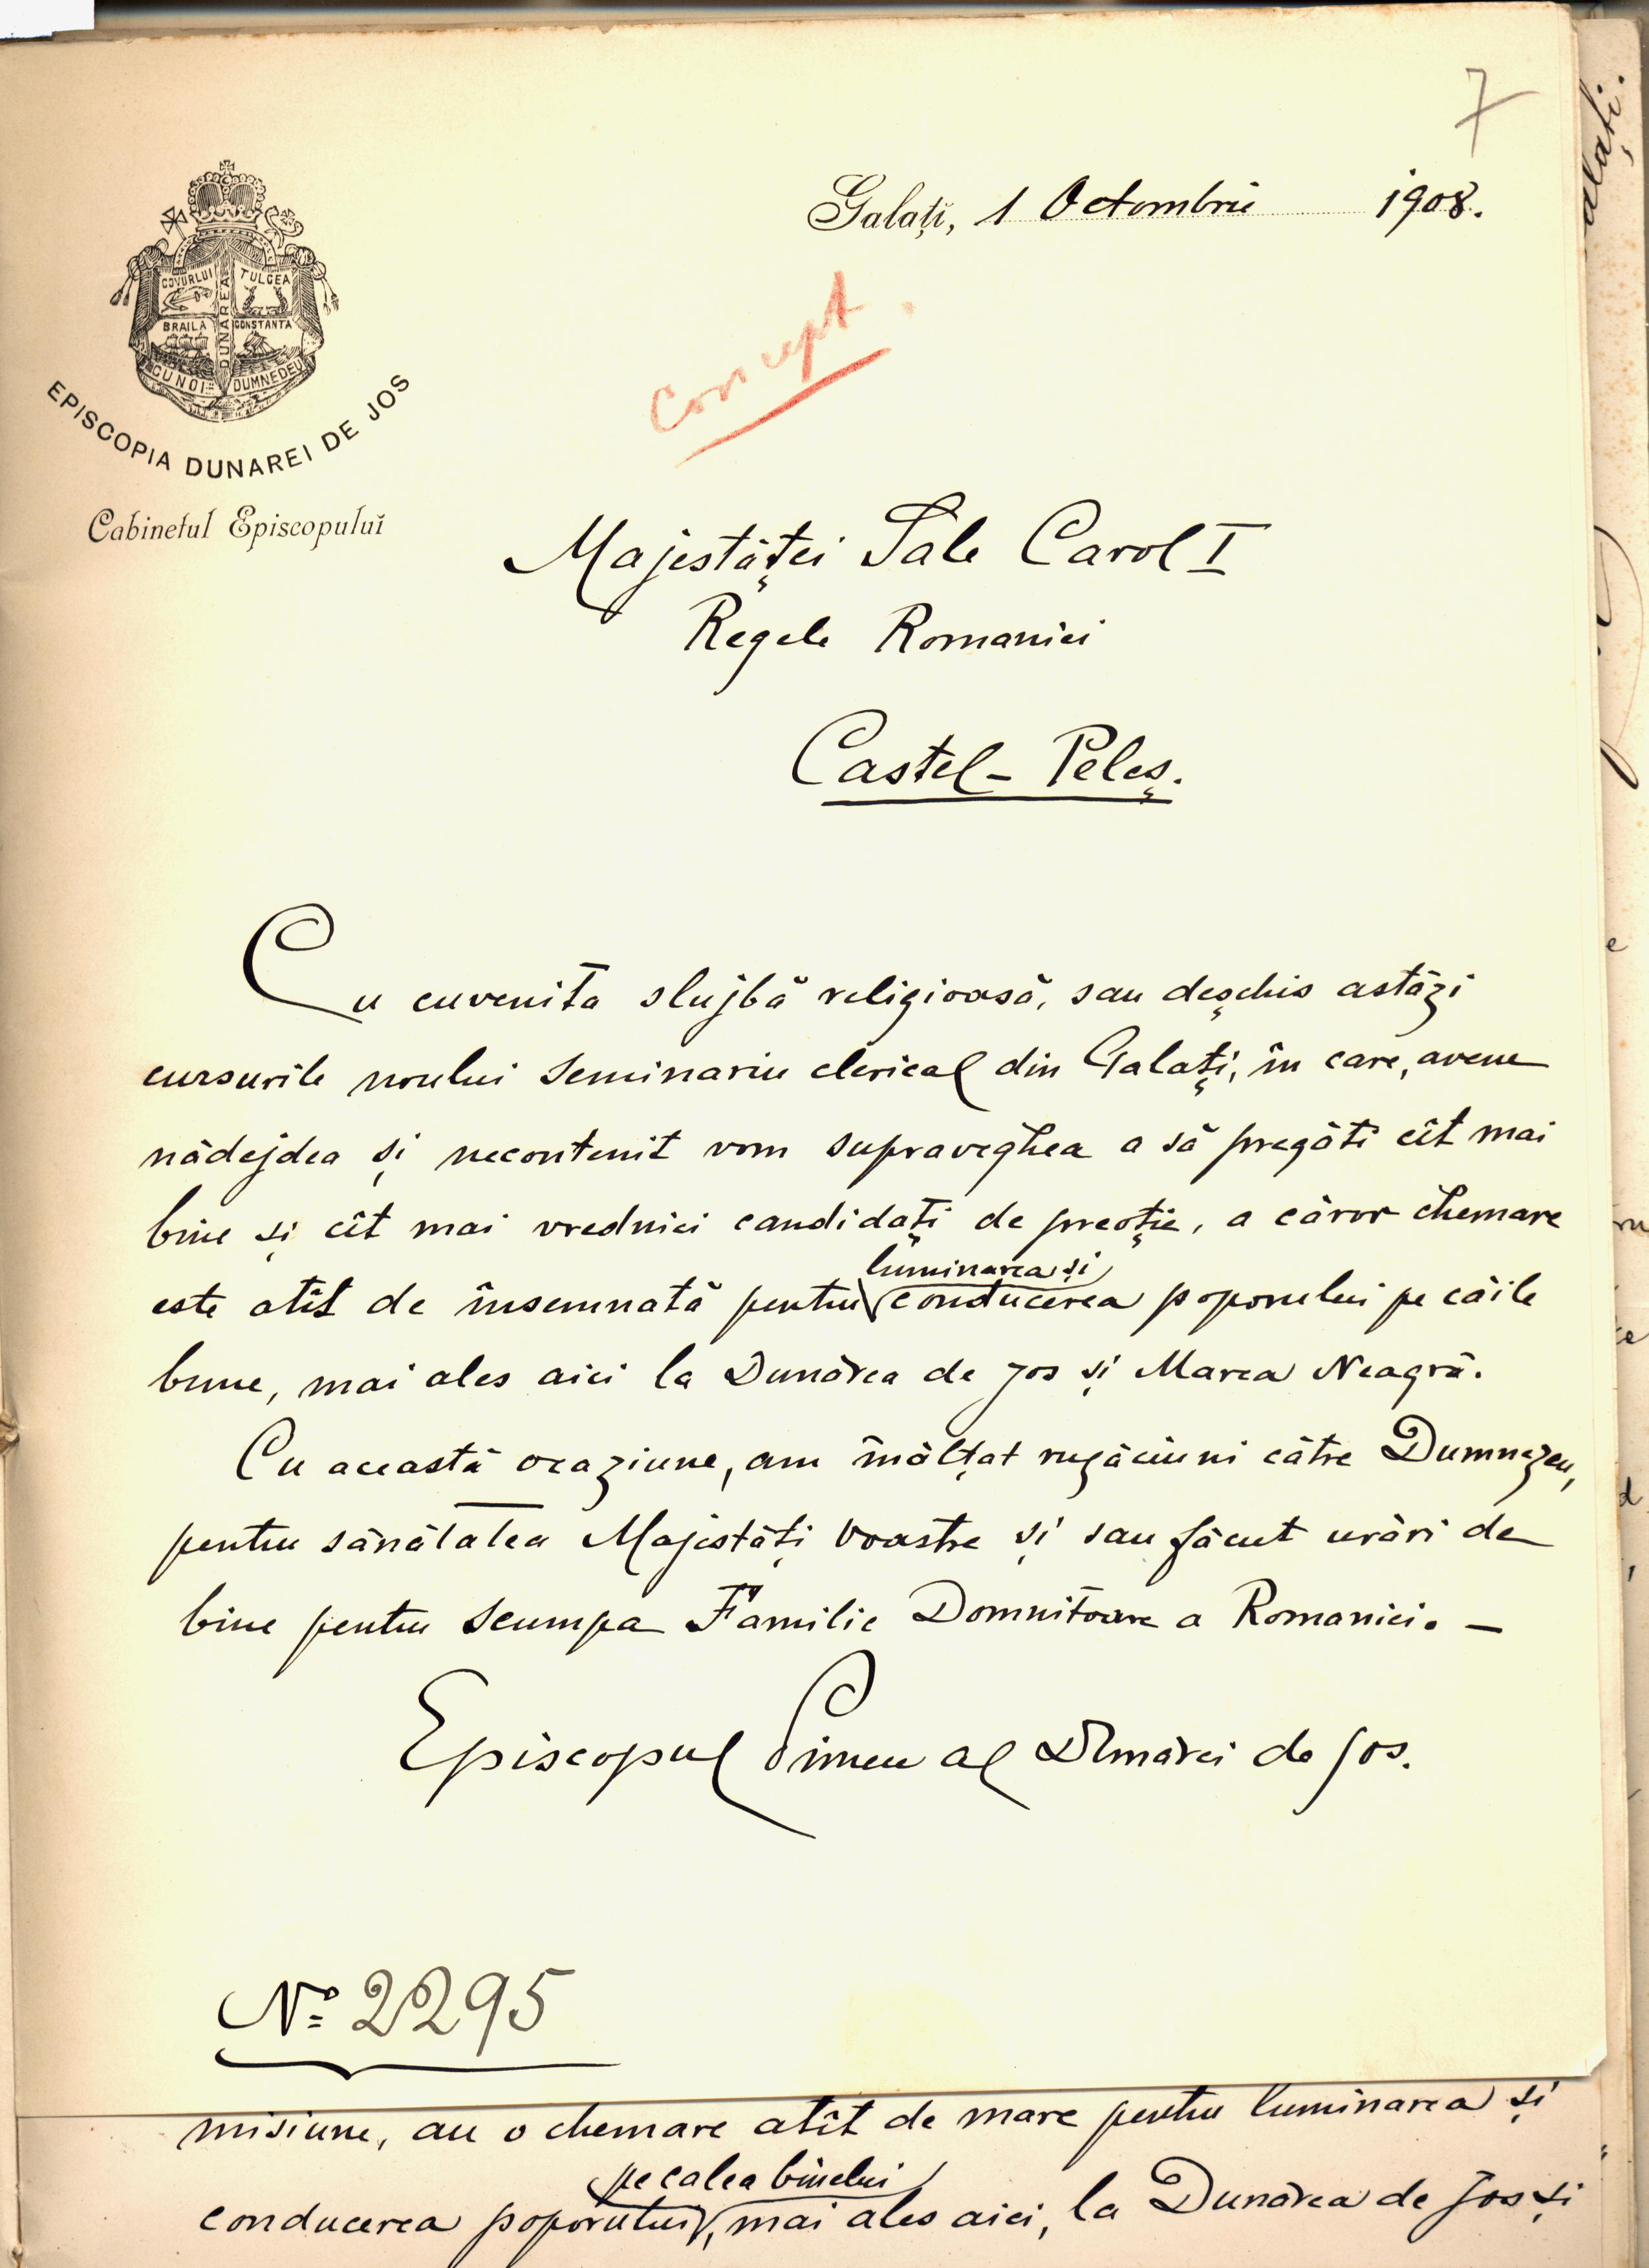 7
Galați, 1 Octombrie 1908.
COVURLUI
TULCEA
DUNAREA
BRAILA
CONSTANTA
CU NOI
DUMNEDEU
EPISCOPIA DUNAREI DE JOS
Cabinetul Episcopuluĭ
Concept
Majestăței Sale Carol I
Regele Romaniei
Castel-Peleș.
Cu cuvenita slujbă religioasă, sau deșchis astăzi
cursurile noului seminariu clerical din Galați, în care, avem
nădejdea și necontenit vom supraveghea a să pregăti cît mai
bine și cît mai vrednici candidați de preoție, a căror chemare
luminarea și
este atît de însemnată pentru conducerea poporului pe căile
bune, mai ales aici la Dunărea de jos și Marea Neagră.
Cu această ocaziune, am înălțat rugăciuni către Dumnezeu,
pentru sănătatea Majestăți Voastre și sau făcut urări de
bine pentru scumpa Familie Domnitoare a Romaniei. —
Episcopul Pimen al Dunărei de Jos.
No 2295
misiune, au o chemare atît de mare pentru luminarea și
pe calea binelui
conducerea poporului, mai ales aici, la Dunărea de Jos și